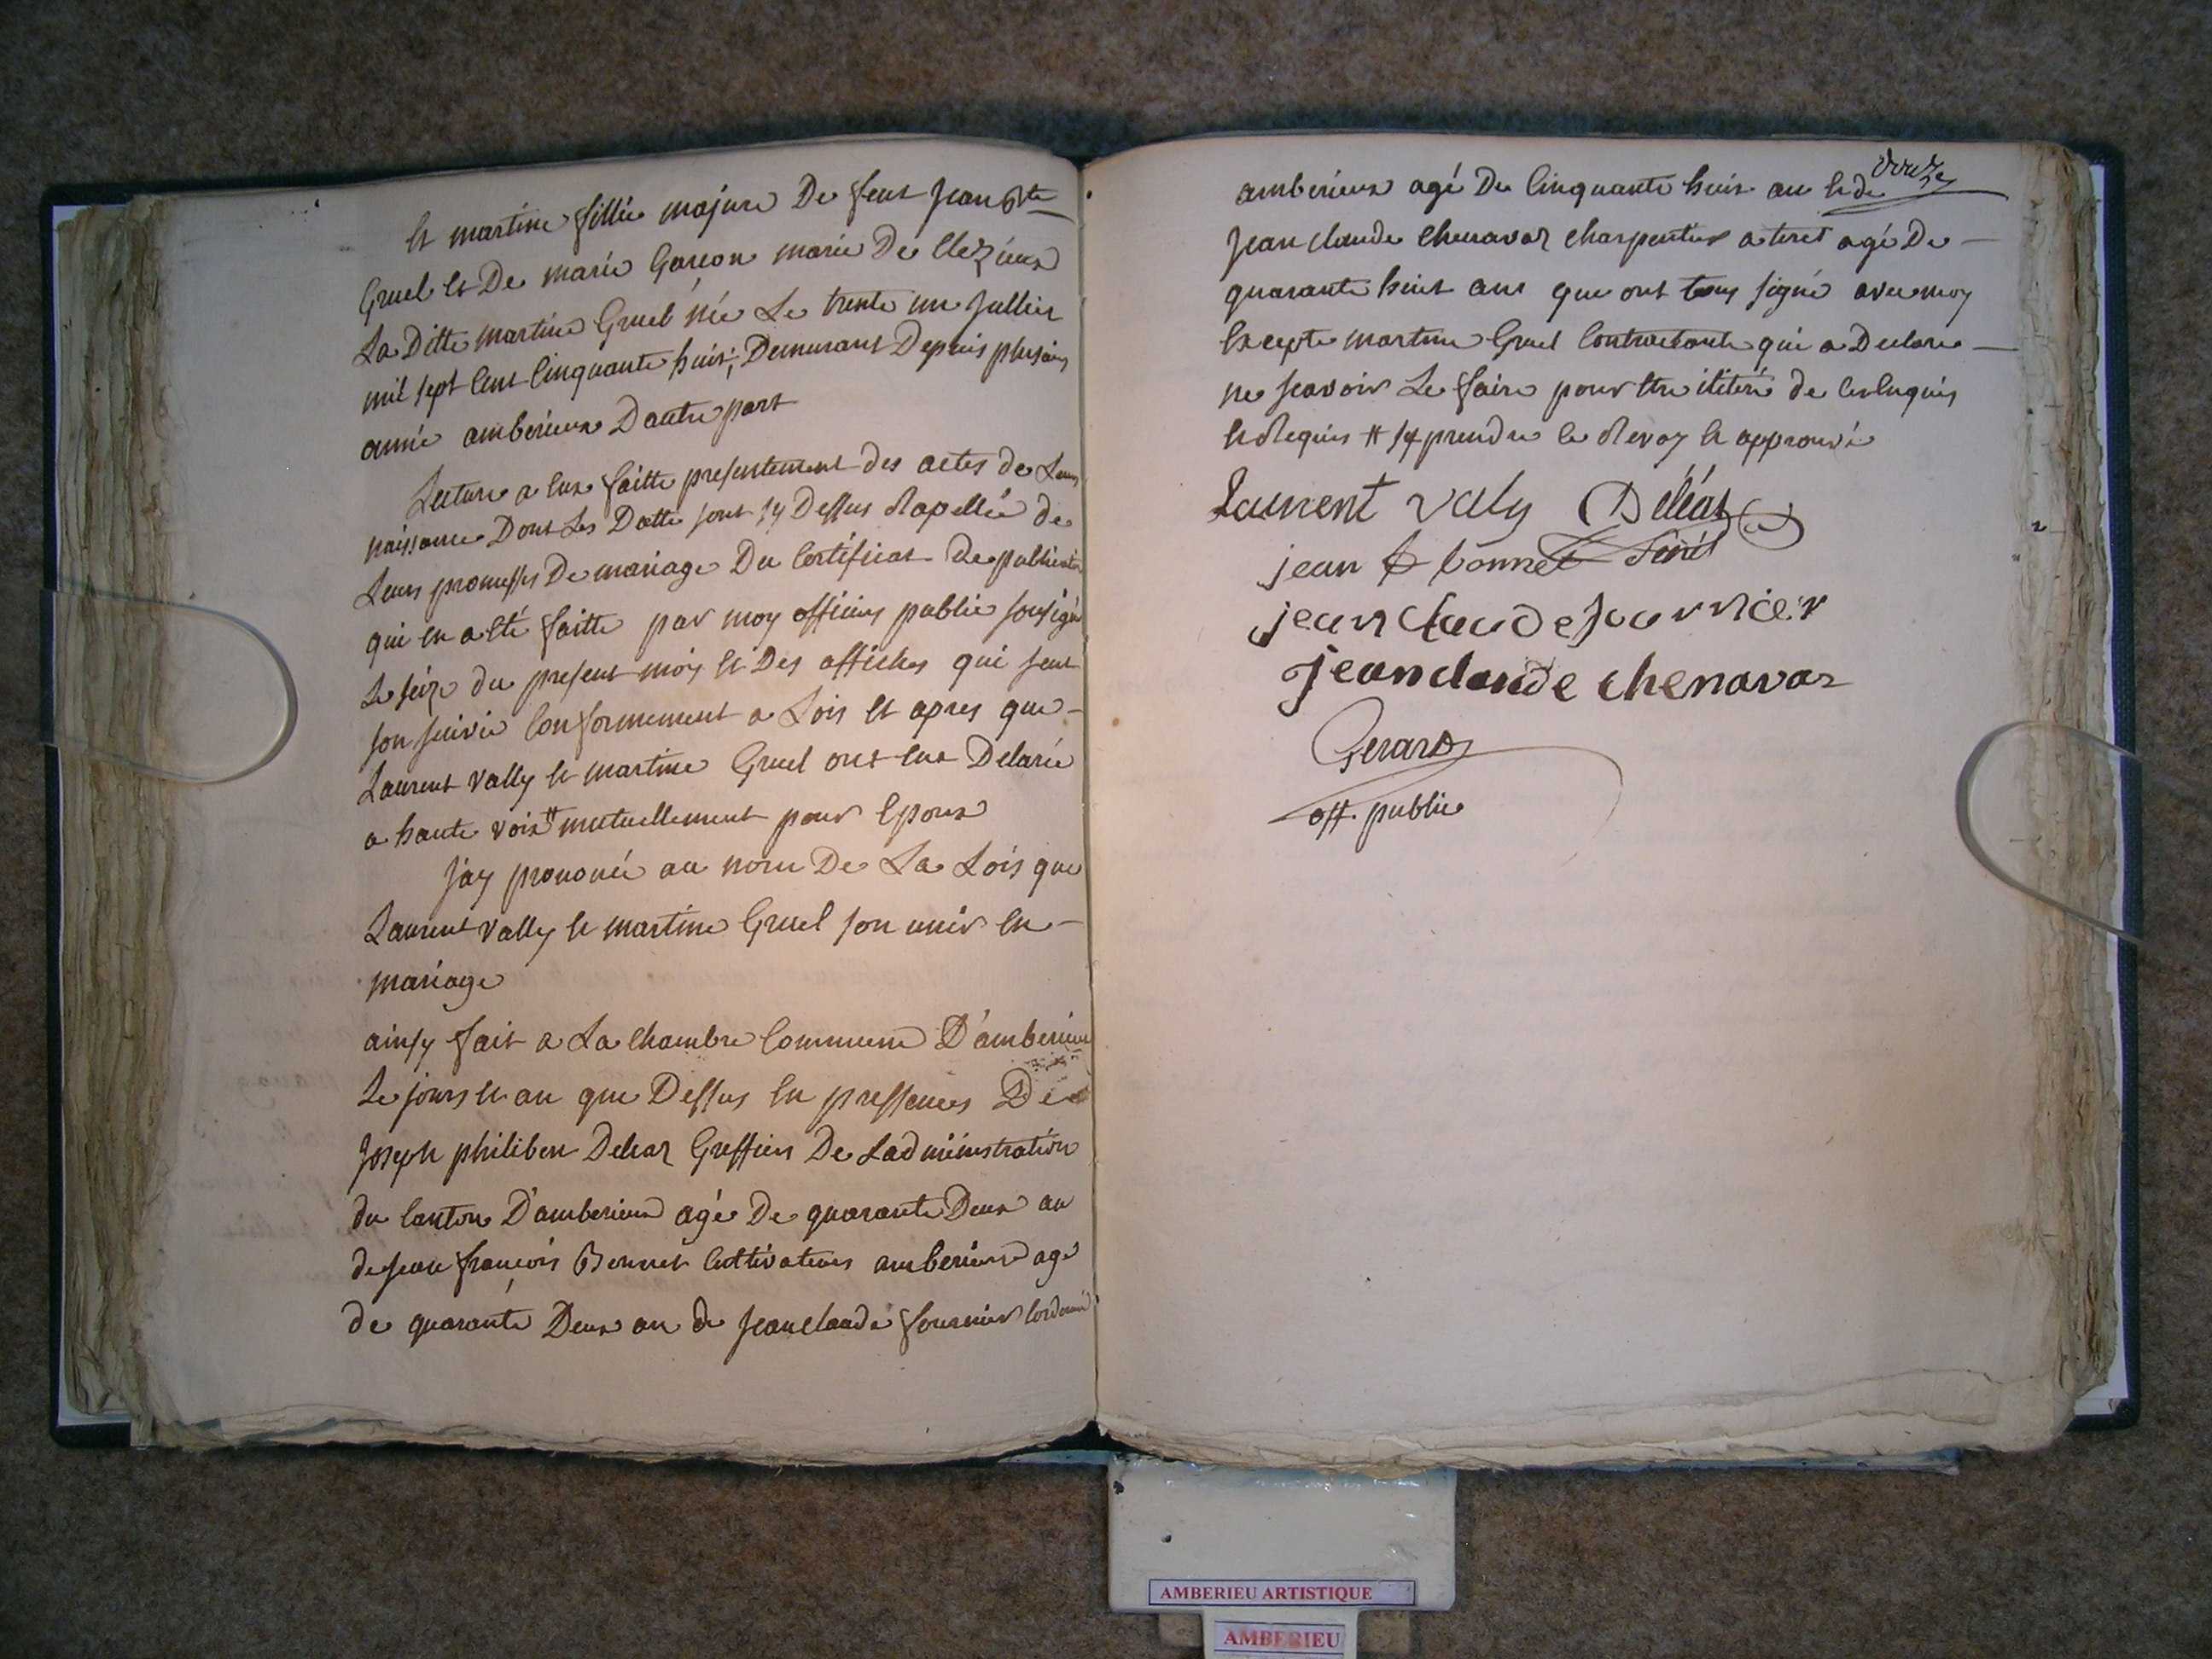 et martine fillie majure De feut Jean Bte
Gruel et De marie Garçon marie De Clezieux
La Ditte martine Gruel née Le trente un Jullier
mil sept Cent Cinquante huit; Demurant Depuis plusieurs
année amberieux Dautre part
Lecture a eux faitte presentement des actes de Leurs
naissance Dont Les Datte sont sy Dessus Rapellée de
Leurs promesses De mariage Du Certificat De publication
qui en a été faitte par moy officiers public sousigné
Le seize du present mois et Des affiches qui sent
son suivie Conformement a Lois et apres que
Laurent Vally et martine Gruel ont eux Delarée
a haute voix # mutuellement pour Epoux
Jay prononcé au nom De La Lois que
Laurent Vally et martine Gruel son unir en
mariage
ainsy fait a La Chambre Commune D'amberieux
Le jours et an que Dessus en pressences De
Joseph philiber Deleaz Greffiers De Ladminístration
du Canton D'amberieux agé De quarante Deux an
de jean françois Bonnet Cultivateurs amberieux agé
de quarante Deux an de Jean claude fournier Cordonié
onze
amberieux agé De Cinquante huit an et de
Jean claude Chenavaz Charpentier a teret agé De
quarante huit ans que ont tous signé avec moy
Excepte martine Gruel Contractante qui a Declare
ne scavoir Le faire pour Etre iliteré de ce Enquis
et Requis # sy prendre le Revoy et approuvé
Laurent valy Deléaz
jean f bonnet
jean Claude fournier
jean claude chenavaz
Gerard
off. public
AMBERIEU ARTISTIQUE
AMBERIEU